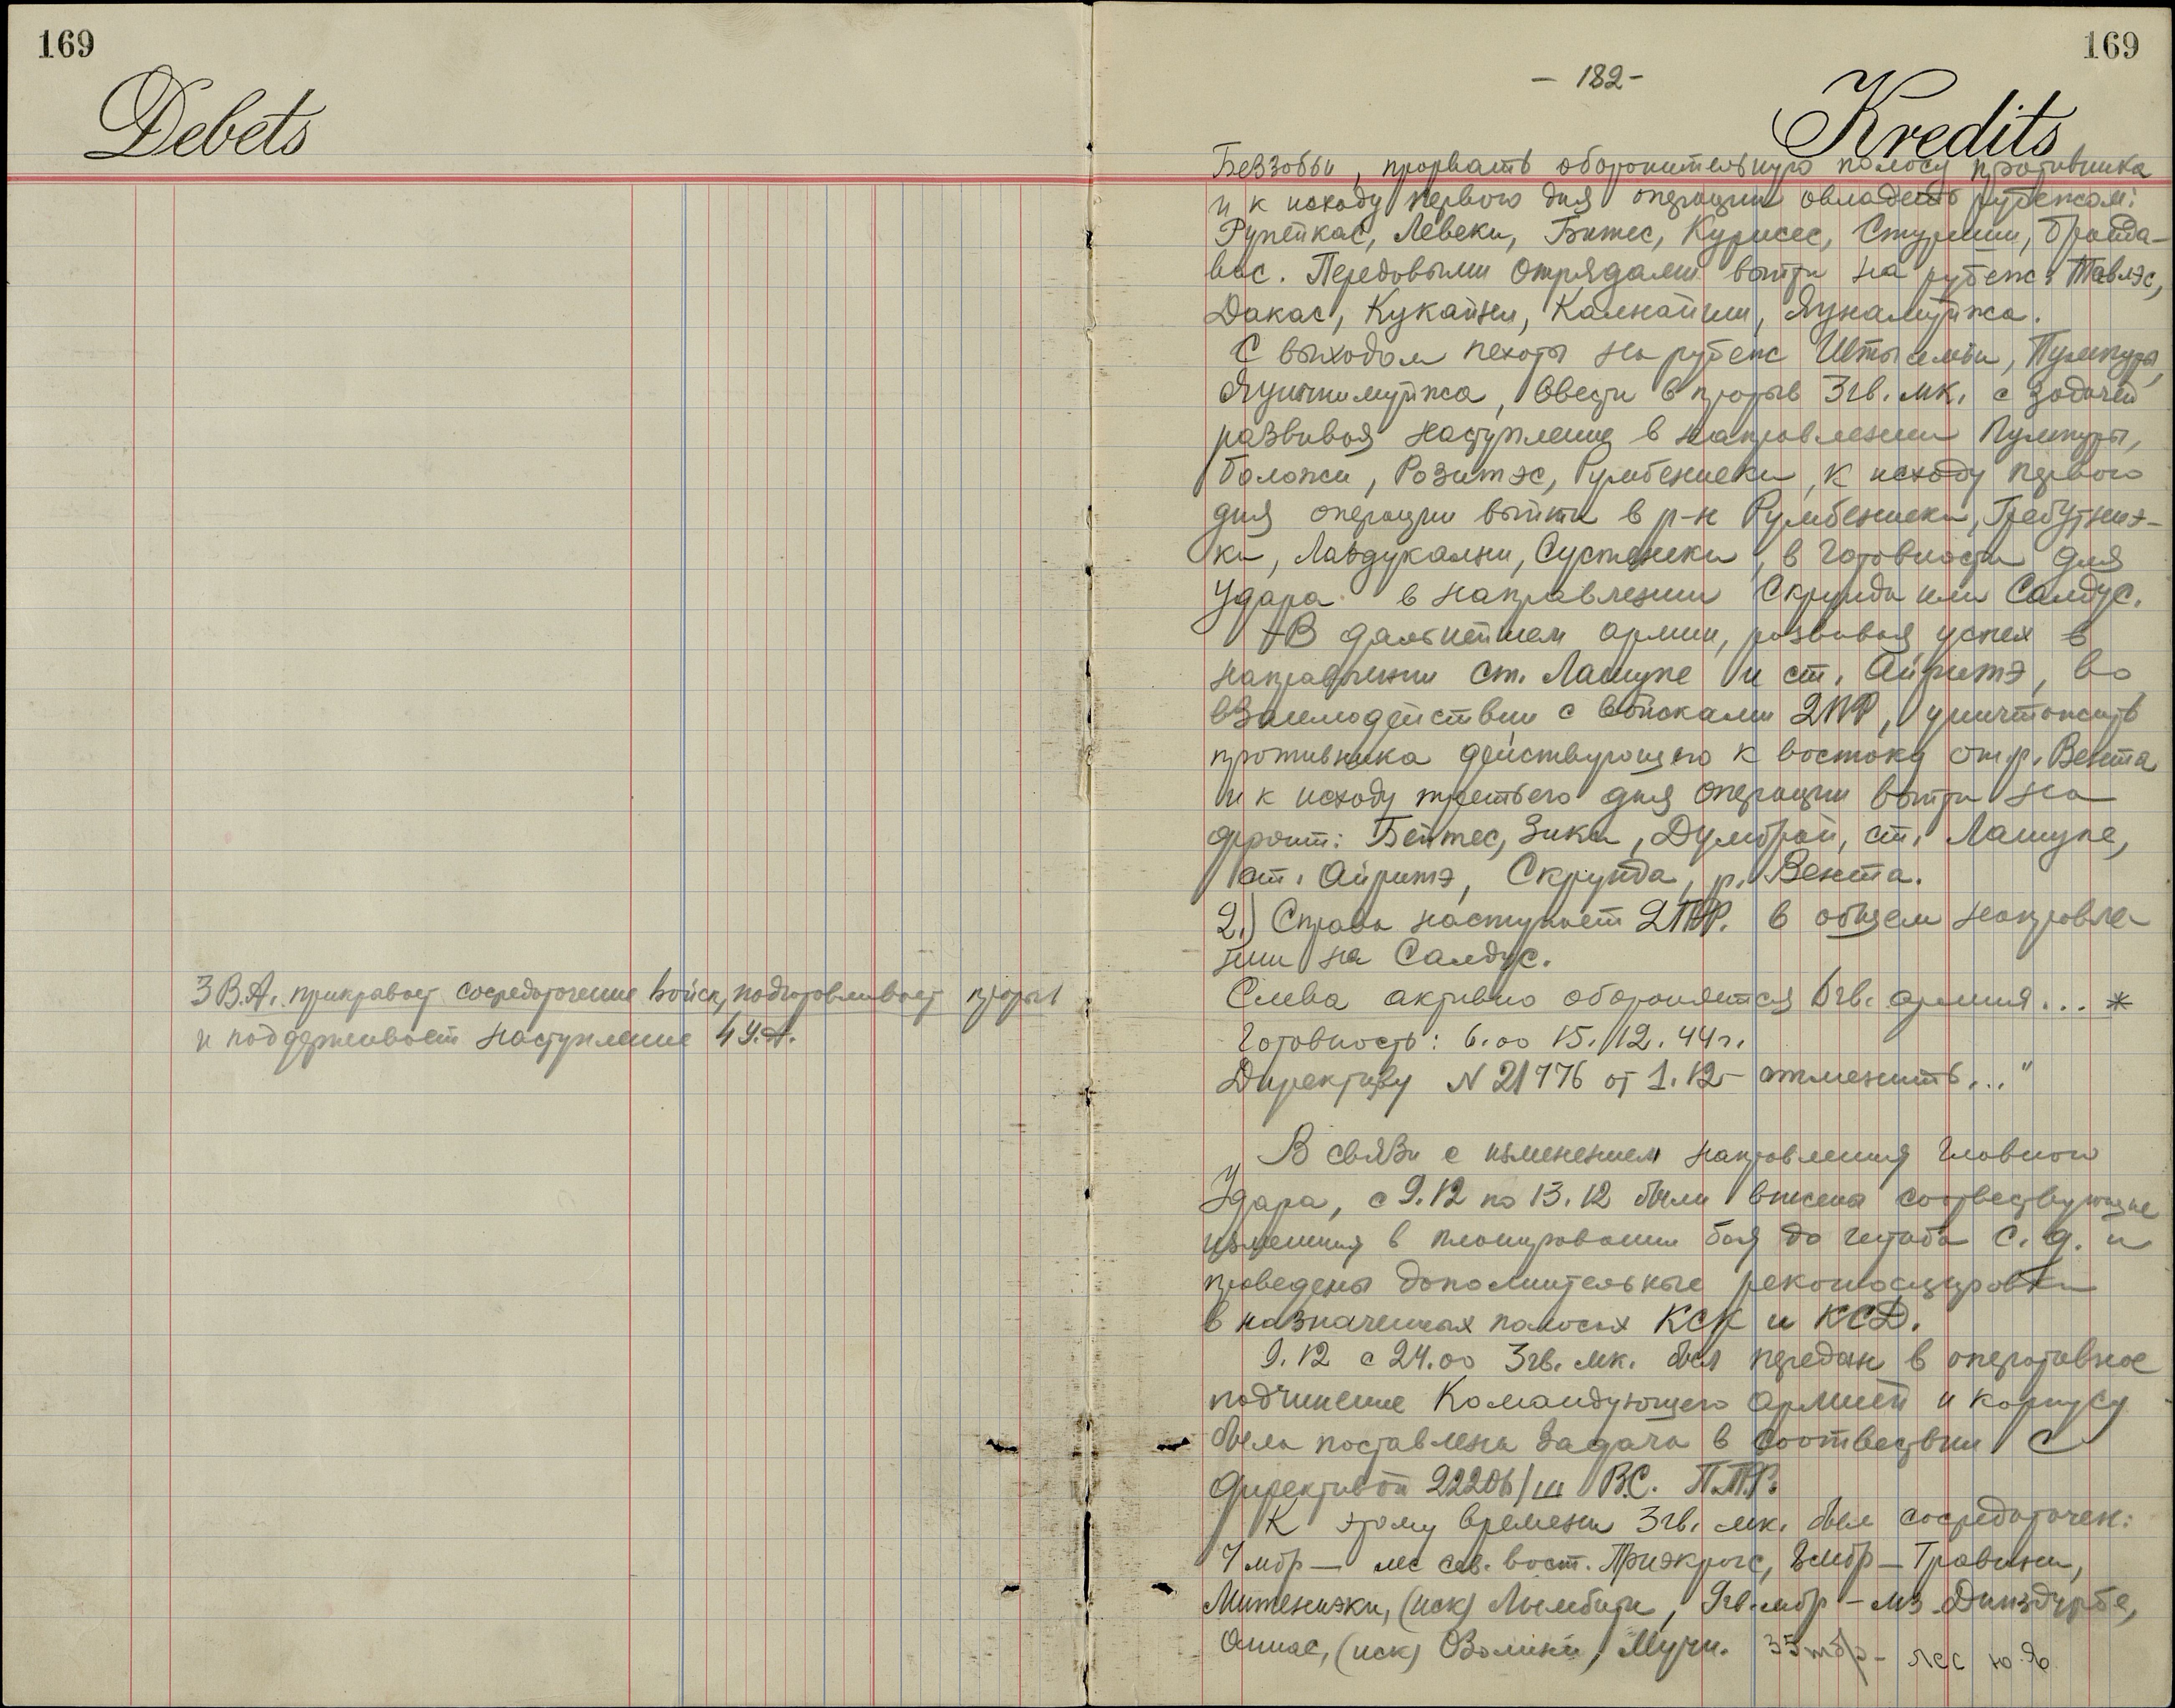 169
Debets
3 В.А. прикрывает сосредоточение войск, подготовливает прорыв
и поддерживает наступление 4 У.А.
169
- 182 -
Kredits
Беззобьи, прорвать оборонительную полосу противника
и к исходу первого дня операции овладеть рубежом:
Рупейкас, Левеки, Битес, Курисес, Стурииши,
вас. Передовыми отрядами выйти на рубеж: Тавлэс,
Дакас, Кукайни, Калнайши, Яунамуйжа.
С выходом пехоты на рубеж Пумпуры,
Яунмуйжа, ввести в прорыв 3 гв. мк. с задачей
развивая наступление в направлении Пумпуры,
Баложи, Розитэс, Румбениеки, к исходу первого
дня операции выйти в р-н Румбениеки, Гребутниэ-
ки, Лавдукални, Сустениеки, в готовности для
удара в направлении Скрунда или Салдус.
В дальнейшем армии, развивая успех в
направлении ст. Лашупе и ст. Айритэ, во
взаимодействии с войсками 2ПФ, уничтожить
противника действующего к востоку от р. Вента
и к исходу третьего дня операции выйти на
фронт: Бейтес, Зики, Думбрай, ст. Лашупе,
ст. Айритэ, Скрунда, р. Вента.
2.) Справа наступает 2ПФ. в общем направле
нии на Салдус.
Слева активно обороняется 6 гв. армия... *
Готовность: 6.00 15.12.44 г.
Директиву N 21776 от 1.12 - отменить..."
В связи с изменением направления главного
удара, с 9.12 по 13.12 были внесены соответствующие
изменения в планировании боя до штаба С.Д. и
проведены дополнительные рекогносцировки
в назначенных полосах КСК и КСД.
9.12 с 24.00 3 гв. мк. был передан в оперативное
подчинение Командующего армией и корпусу
была поставлена задача в соответствии с
директивой 22206/ш В.С. П.П.Ф.
К этому времени 3 гв. мк. был сосредоточен:
7 мбр - лес сев. вост. Приэкрогс, 8 мбр - Травини,
Митениэки, (иск) Лымбиты, 9 гв. мбр - мз. Динздурбе,
Ошас, (иск) Озолини, Мучи. 35 тбр - лес ю.в.